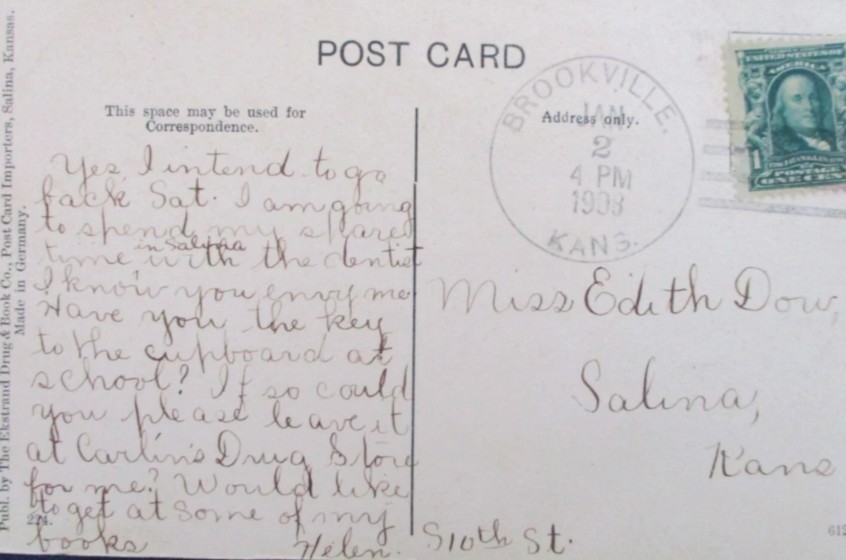 POST CARD
This space may be used for
Correspondence.
Address only.
Publ. by The Ekstrand Drug & Book Co., Post Card Importers, Salina, Kansas.
Made in Germany.
Yes, I intend to go
back Sat. I am going
to spend my spare
in Salina
time with the dentist
I know you envy me
Have you the key
to the cupboard at
school? If so could
you please leave it
at Carlin's Drug Store
for me? Would like
to get at some of my
books Helen.
BROOKVILLE.
JAN
2
4 PM
1908
KANS.
UNITED STATES OF
AMERICA
1
POSTAGE
ONE CENT
Miss Edith Dow,
Salina,
Kans
S 10th St.
224.
612